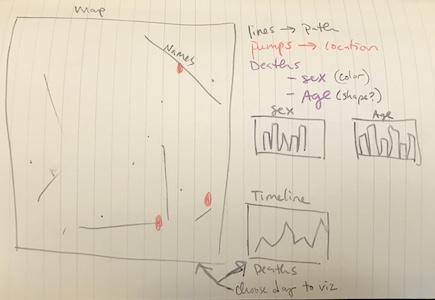 Map
Names
lines → path
pumps → location
Deaths
- sex (color)
- Age (shape?)
sex
Age
Timeline
Deaths
choose day to viz